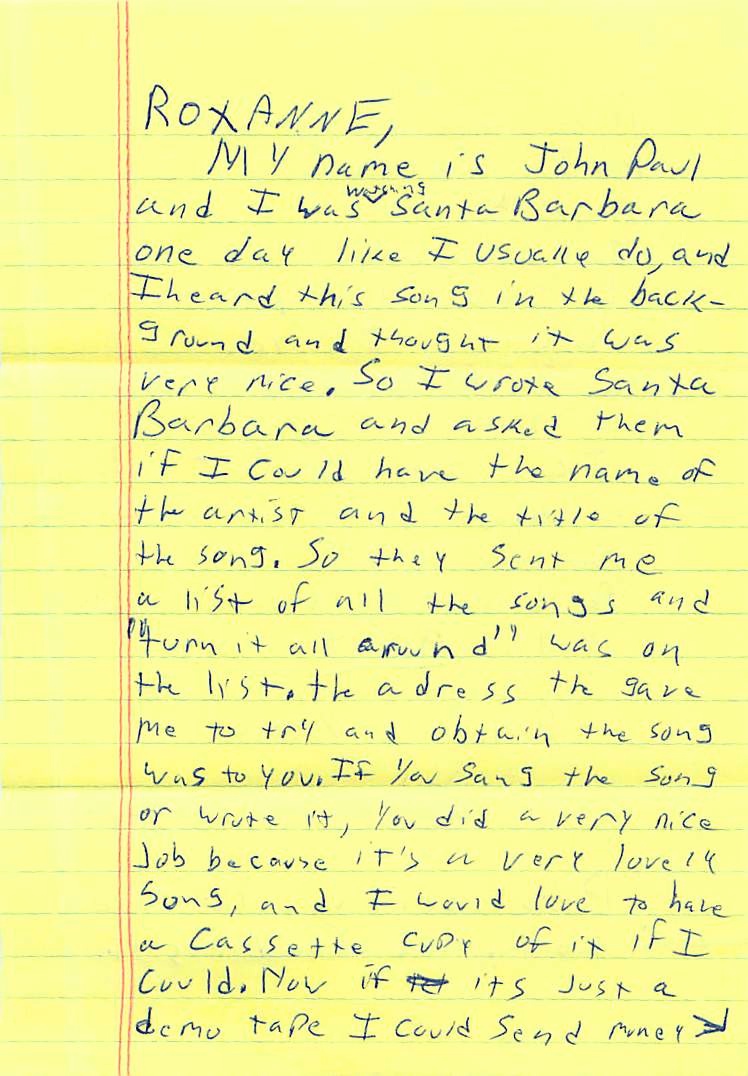 ROXANNE,
MY name is John Paul
and I was watching Santa Barbara
one day like I usually do, and
I heard this song in the back-
ground and thought it was
very nice. So I wrote Santa
Barbara and asked them
if I could have the name of
the artist and the title of
the song. So they sent me
a list of all the songs and
"turn it all around" was on
the list. the adress the gave
me to try and obtain the song
was to you. If you sang the song
or wrote it, you did a very nice
Job because it's a very lovely
Song, and I would love to have
a Cassette copy of it if I
could. Now if its Just a
demo tape I could send money